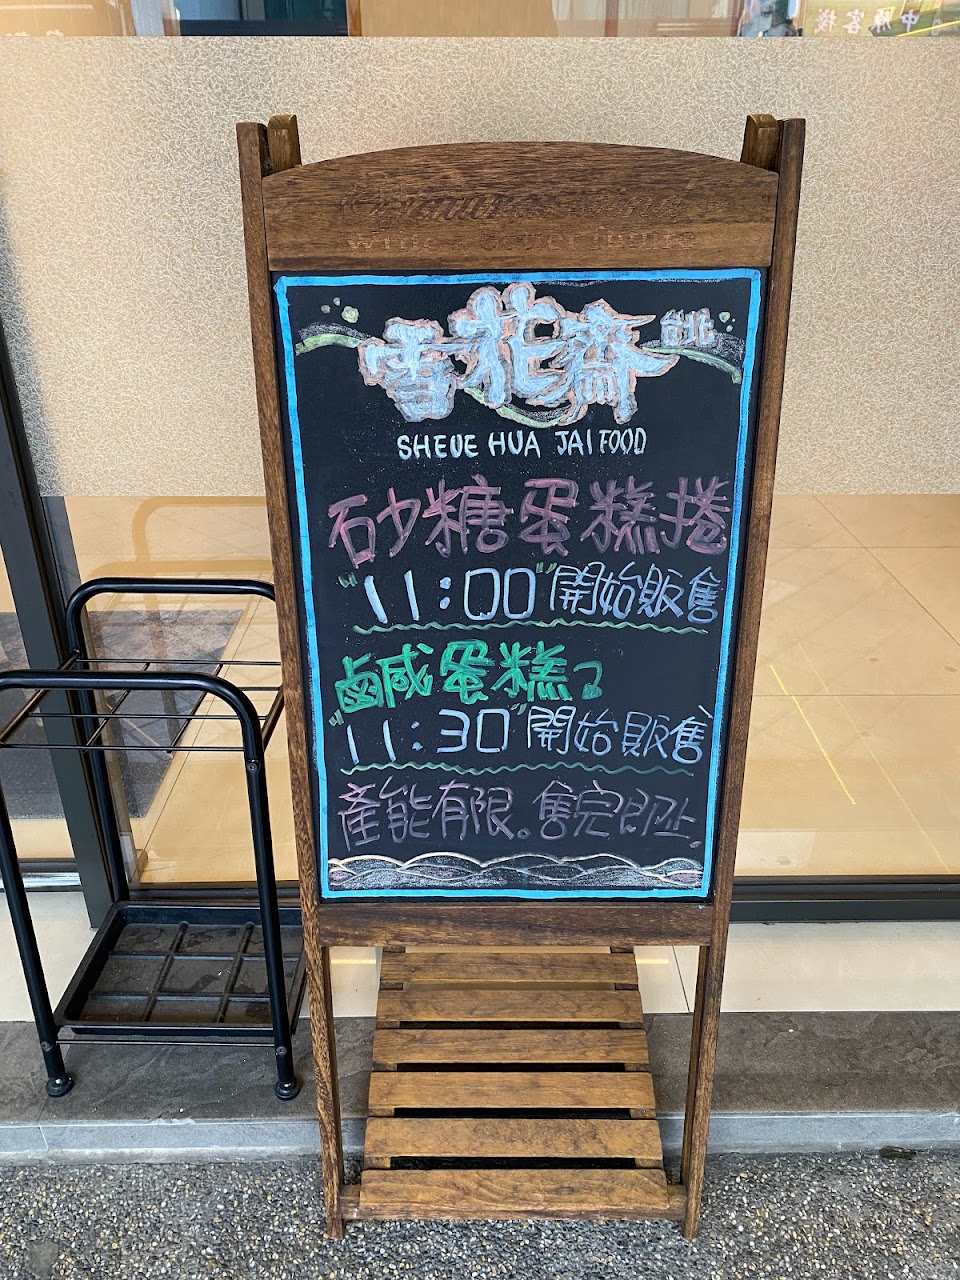 雪花齋 台北
SHEUE HUA JAI FOOD
砂糖蛋糕捲
"11:00"開始販售
鹹蛋糕
"11:30"開始販售
產能有限。售完即止